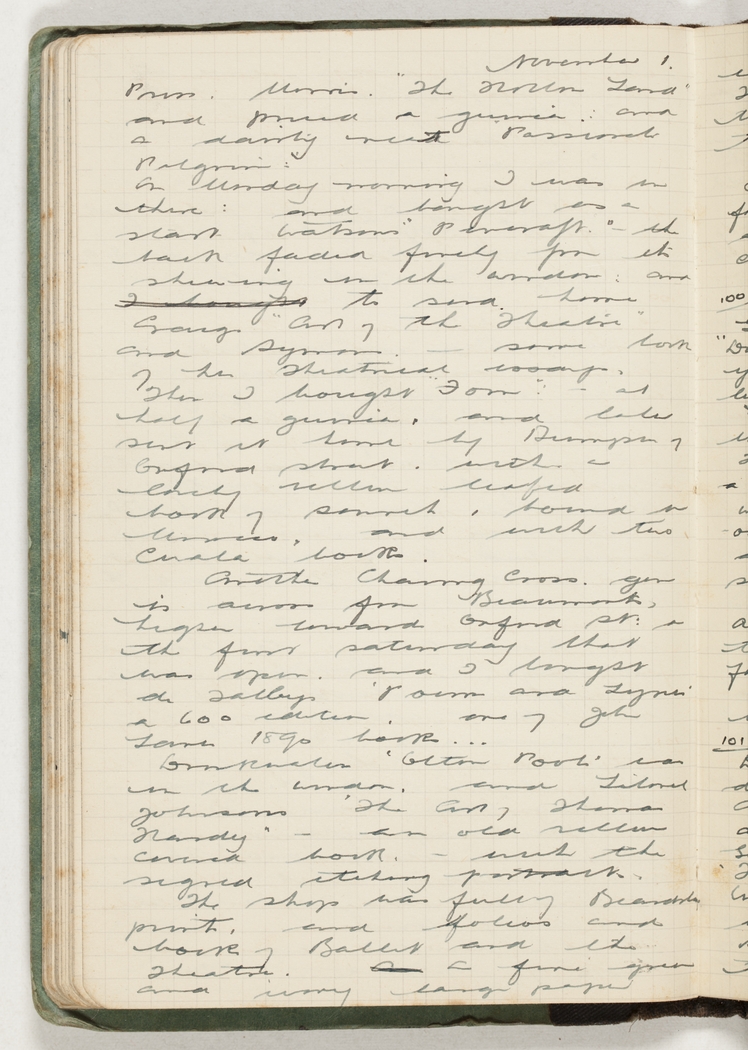 November 1.
Press. Morris. "The Hollow Land"
and priced a guinea: and
a dainty neat Passionate
Pilgrim:
On Monday morning I was in
there: and bought as a
start Watsons "Pencraft." - the
back faded finely from its
shewing in the window: and
I bought to send home
Craigs "Art of the Theatre"
and Symons. - some book
of his theatrical essays.
Then I bought "Form": - at
half a guinea, and later
sent it home by Bumpus of
Oxford Street. with a
lovely yellow leafed
book of sonnets, bound in
Morocco, and with two
Cuala books.
Another Charing Cross. gem
is across from Beaumonts,
higher toward Oxford St: a
the first Saturday that
was open. and I bought
de Tableys "Poems and Lyrics
a 600 edition. one of John
Lanes 1890 books...
Drinkwaters "Olton Pools" was
in the window. and Lionel
Johnsons "The Art of Thomas
Hardy" - an old yellow
covered book. - with the
signed etching portrait.
The shop was full of Beardsley
prints, and folios and
books of Ballet and the
Theatre. a fine green
and ivory large paper